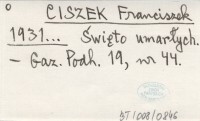 CISZEK Franciszek
1931... Święto umarłych.
– Gaz. Podh. 19, nr 44.
DT/008/0846